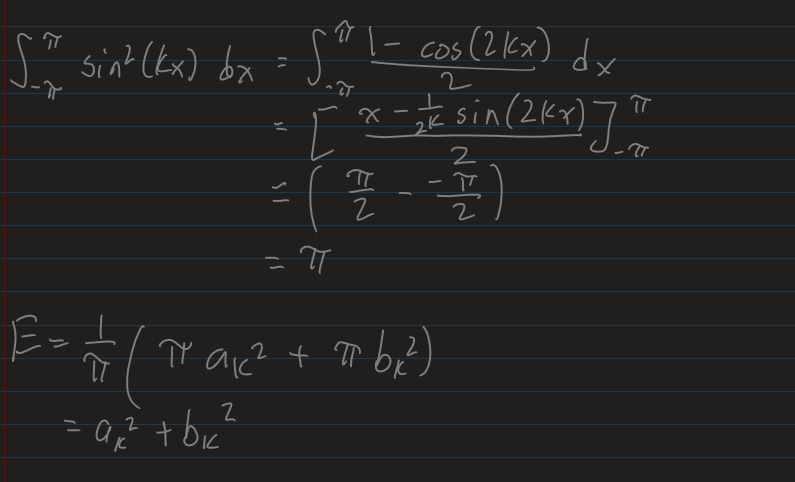 ∫_{-π}^{π} sin²(kx) dx = ∫_{-π}^{π} (1 - cos(2kx))/2 dx
= [(x - 1/(2k) sin(2kx))/2]_{-π}^{π}
= (π/2 - (-π)/2)
= π
E = 1/π (π a_k² + π b_k²)
= a_k² + b_k²